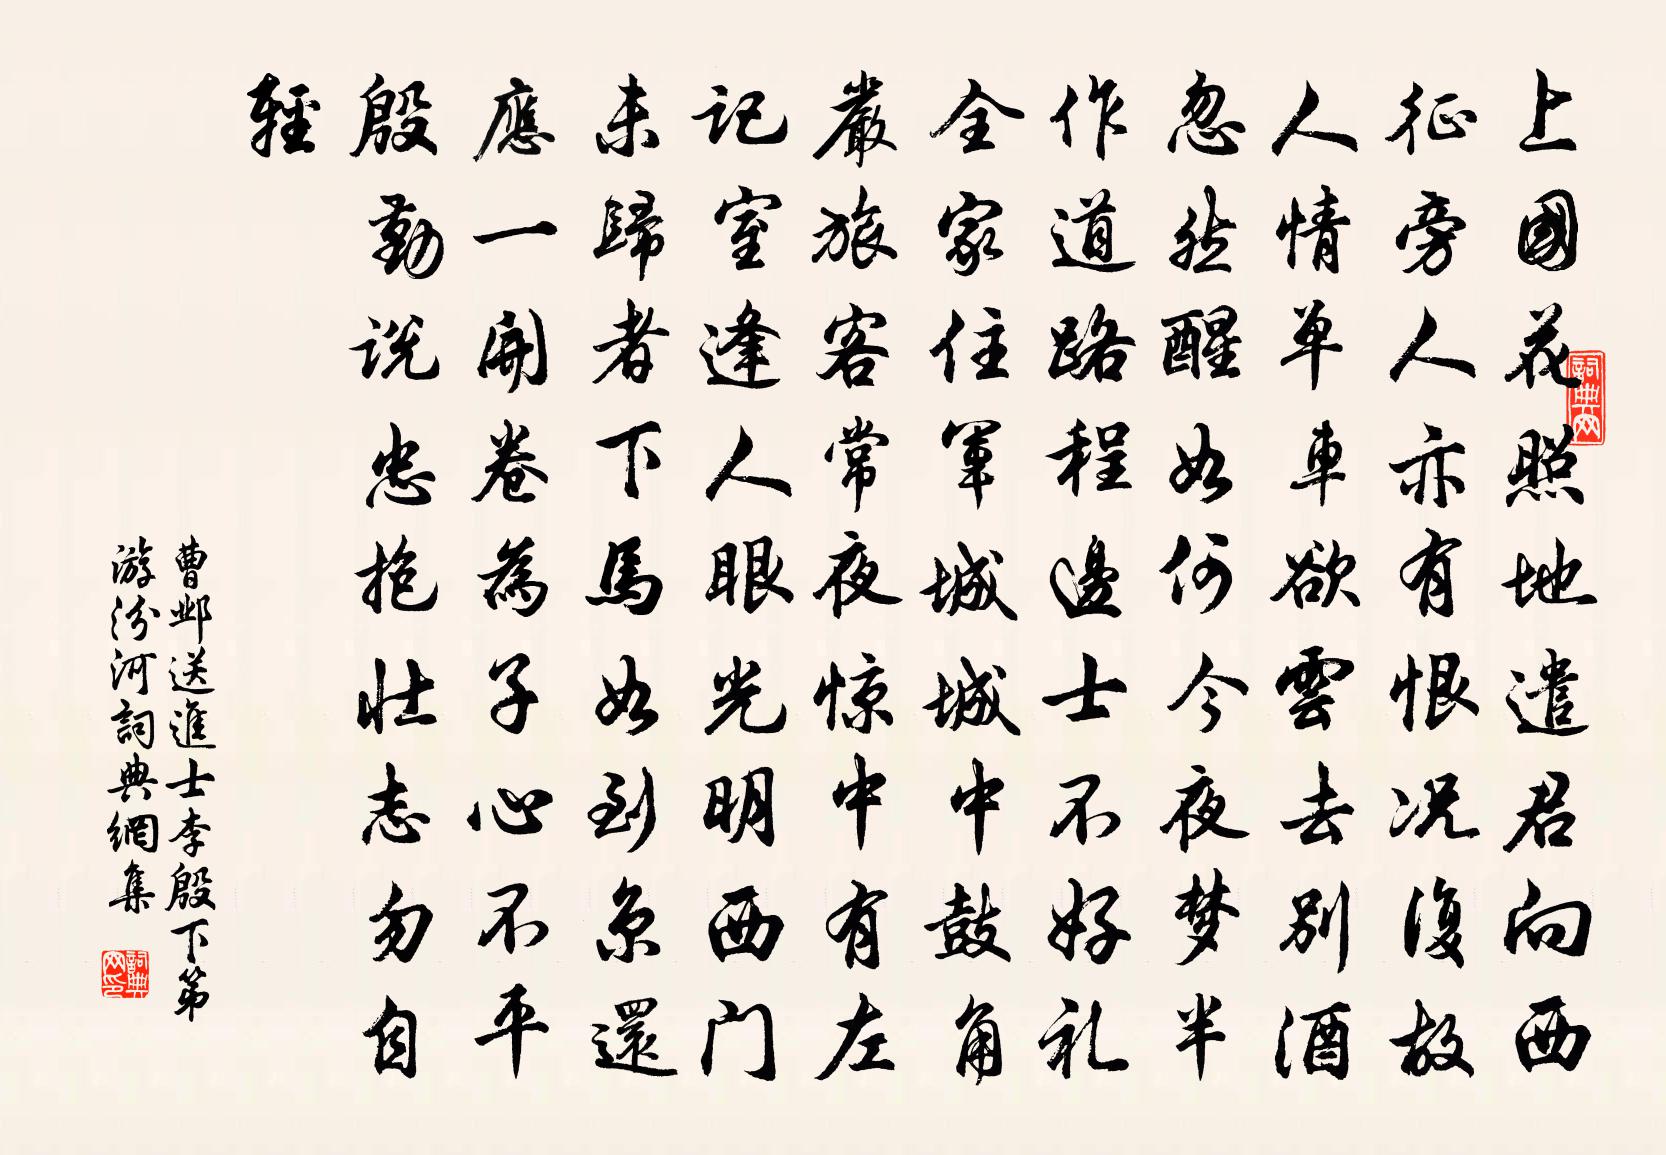 上國花照地遣君向西
征旁人亦有恨況復故
人情單車欲雲去別酒
忽然醒如何今夜梦半
作道路程邊士不好礼
全家住軍城城中鼓角
嚴旅客常夜惊中有左
記室逢人眼光明西门
未歸者下馬如到京還
應一開卷為子心不平
殷勤說忠抱壮志勿自
輕
曹邺送進士李殷下第
游汾河詞典網集
詞典网
詞典网印